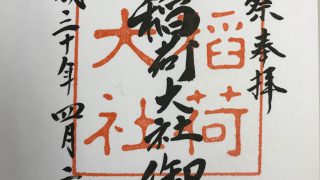 奉拝
稲荷大社御
成三十年四月二
稲荷
大社